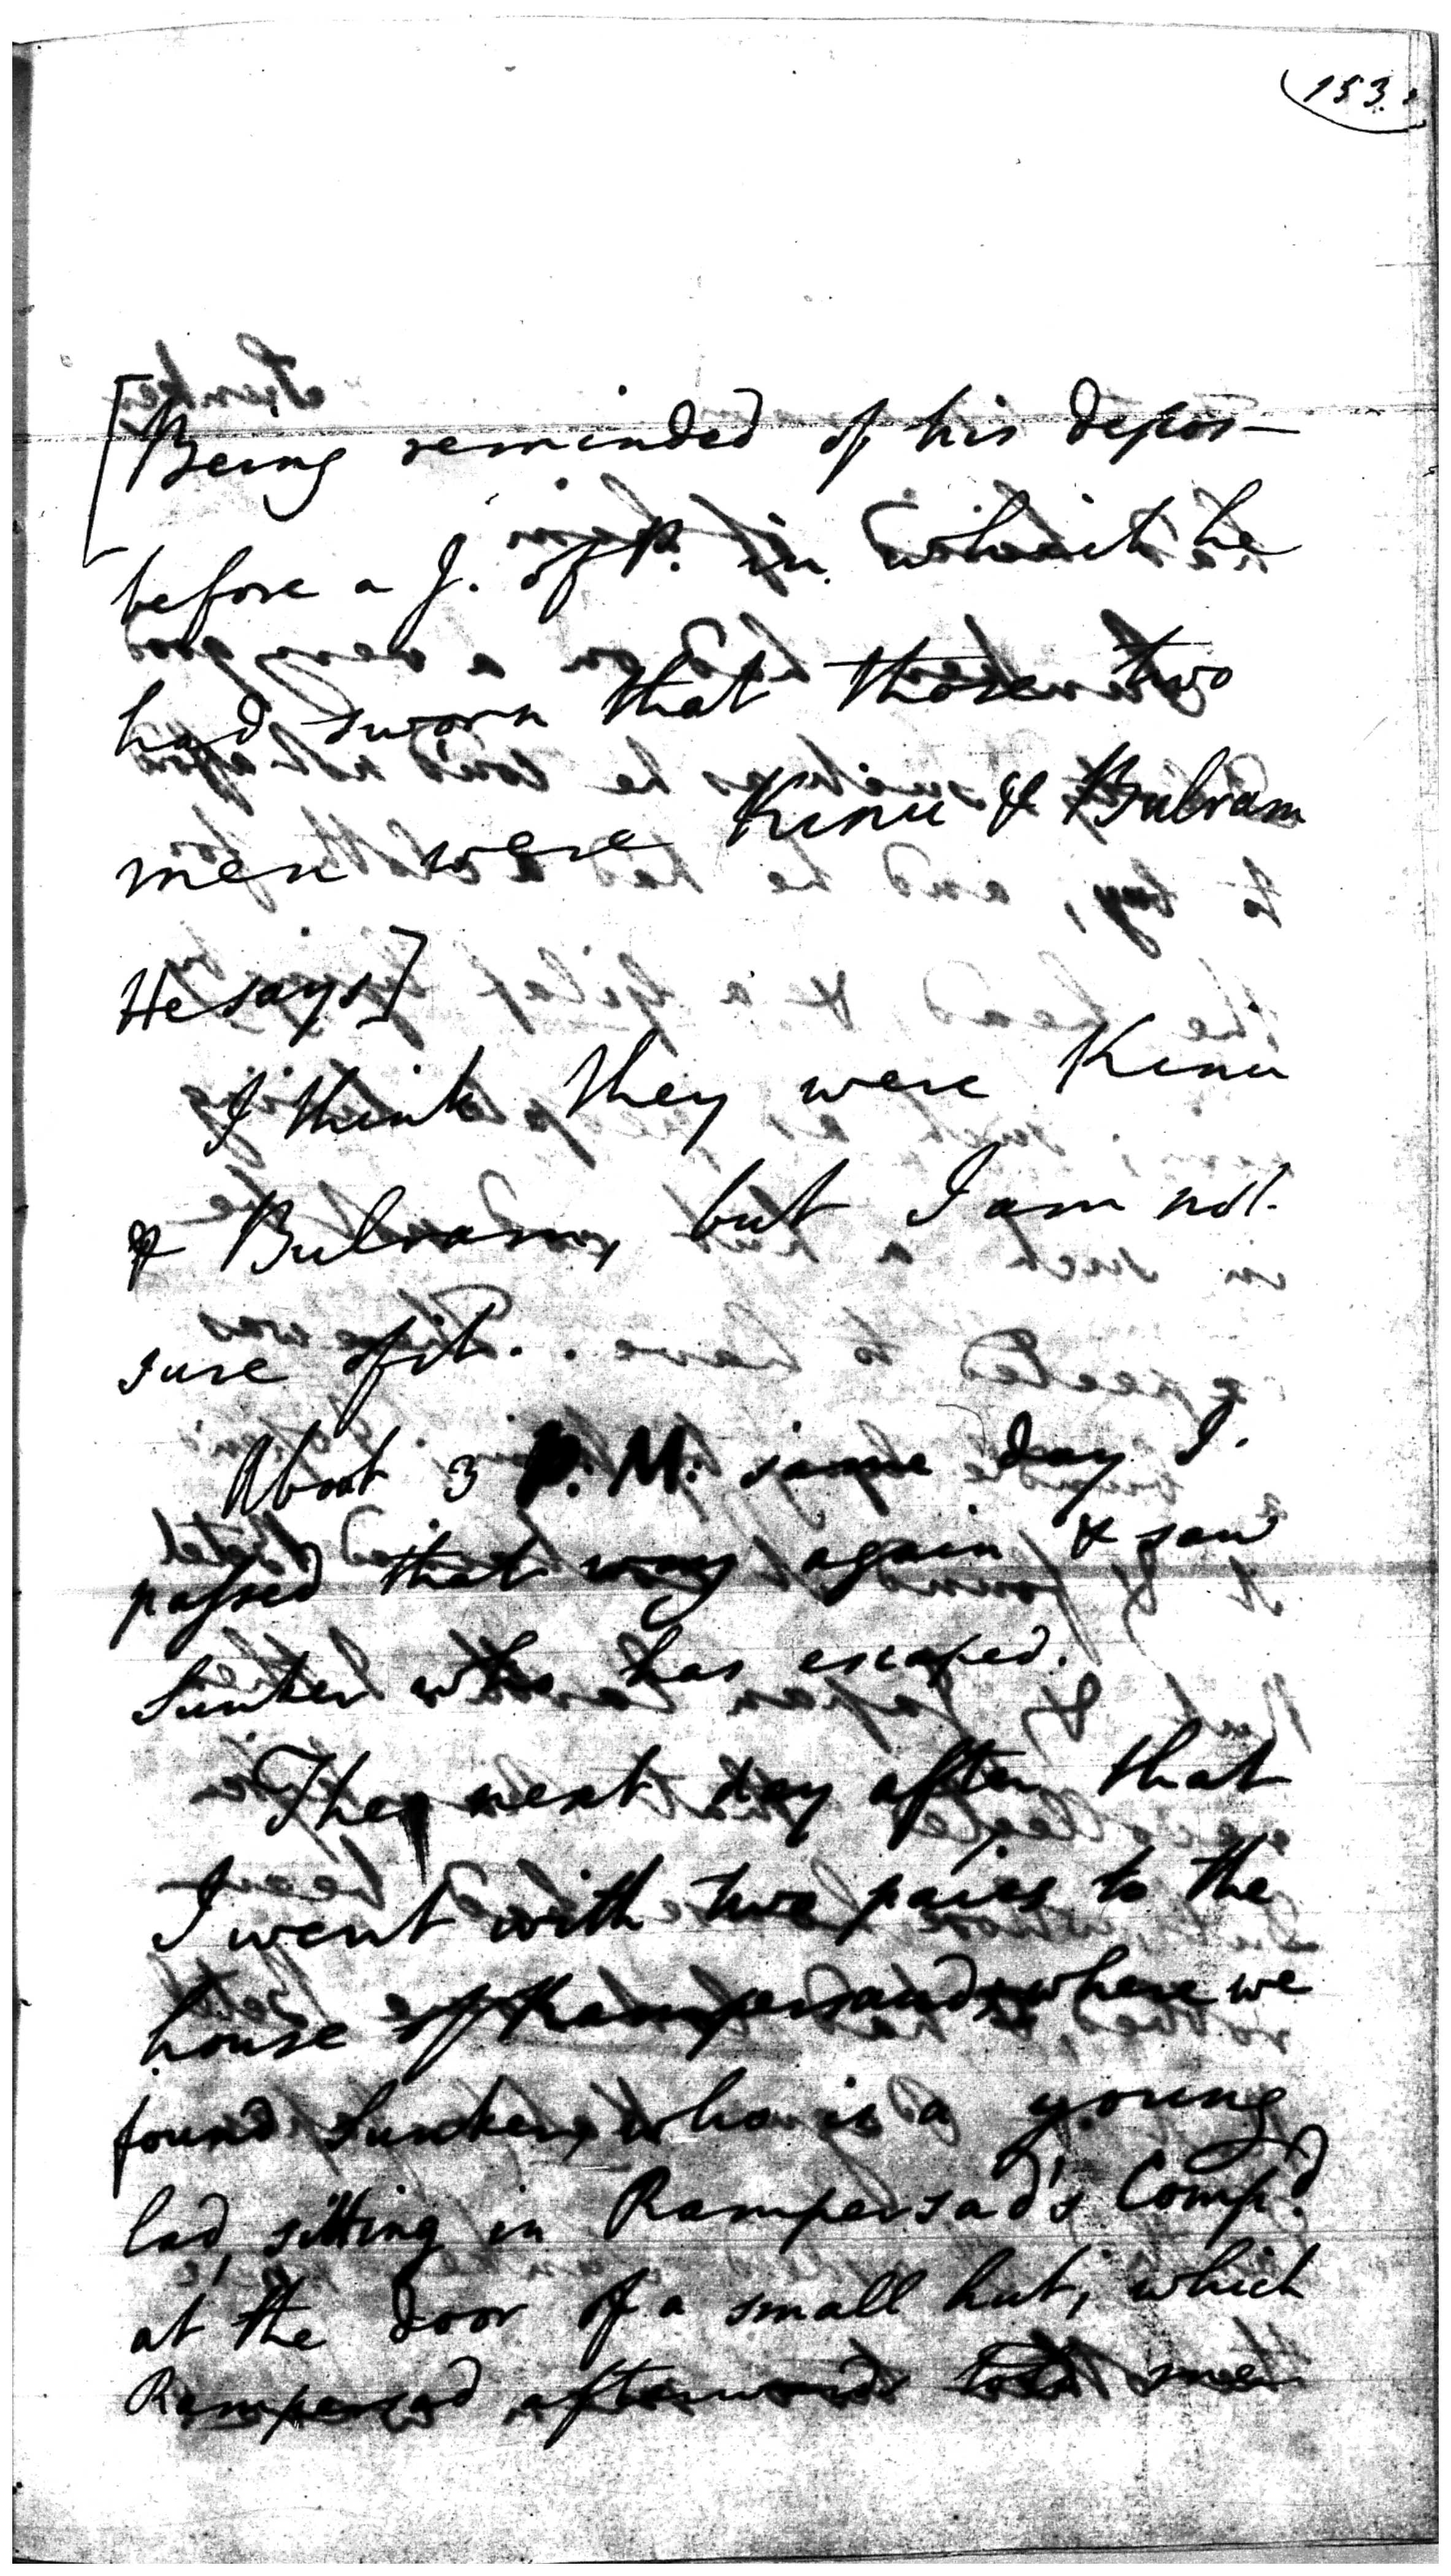 153.
[Being reminded of his depos-
before a J. of P. in which he
had sworn that those two
men were Kinu & Bulram
He says]
I think they were Kinu
& Bulram, but I am not
sure of it.
About 3 P.M. same day I
passed that way again & saw
Sunker who has escaped.
The next day after that
I went with two paies to the
house of Rampersaud where we
found Sunker, who is a young
lad, sitting in Rampersad's Compd
at the door of a small hut, which
Rampersad afterwards told me